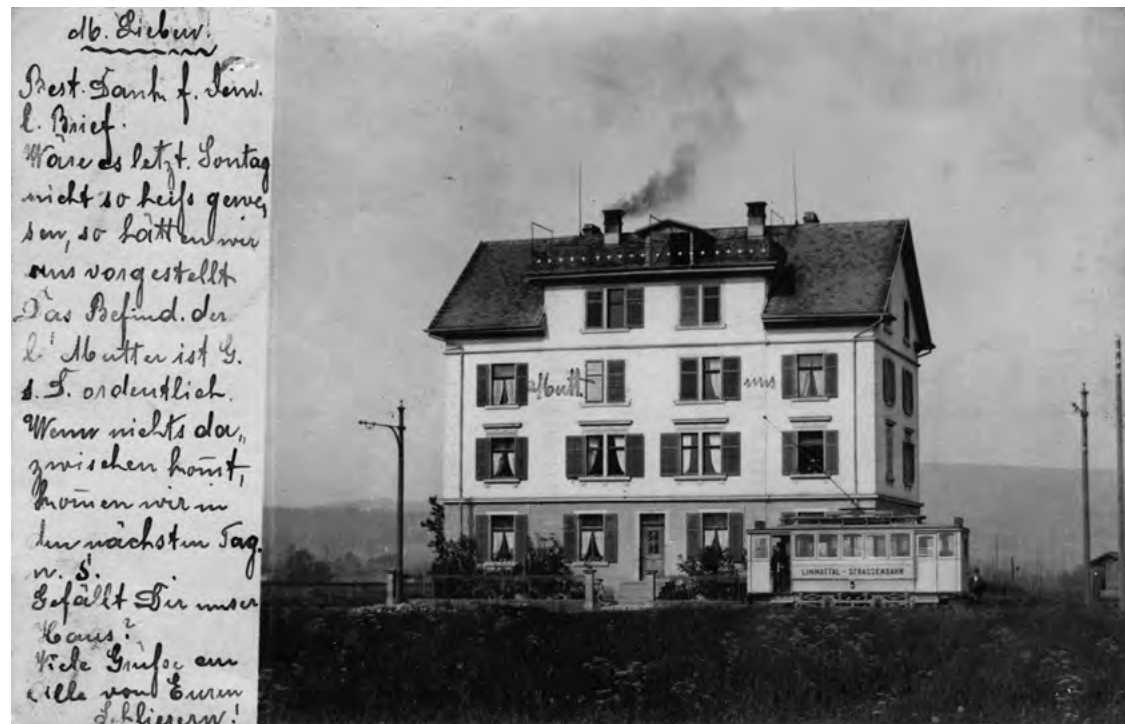 M. Lieben!
Best. Dank f. Dein.
l. Brief.
Wäre es letzt. Sontag
nicht so heiß gewe„
sen, so hätten wir
uns vorgestellt
Das Befind. der
l. Mutter ist G.
s. D. ordentlich.
Wenn nichts da„
zwischen kom̄t,
kom̄en wir in
den nächsten Tag.
n. S.
Gefällt Dir unser
Haus?
Viele Grüße an
alle von Euren
Schlierern!
Mutt.
uns
LIMMATTAL - STRASSENBAHN
5